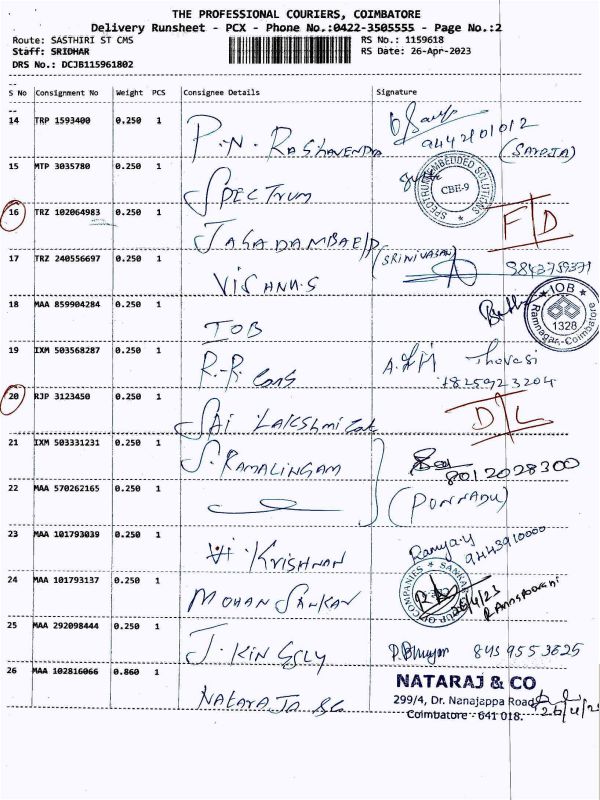 THE PROFESSIONAL COURIERS, COIMBATORE
Delivery Runsheet - PCX - Phone No.:0422-3505555 - Page No.:2
Route: SASTHIRI ST CMS RS No.: 1159618
Staff: SRIDHAR RS Date: 26-Apr-2023
DRS No.: DCJB115961802
S No Consignment No Weight PCS Consignee Details Signature
14 TRP 1593400 0.250 1 P.N. RAGHAVENDRA 9442101012
15 MTP 3035780 0.250 1 SPECTRUM SPECTRUM EMBEDDED SOLUTIONS CBE-9
16 TRZ 102064983 0.250 1 JAGADAMBAE F/D
17 TRZ 240556697 0.250 1 VISHNU.S (SRINIVASAN)
18 MAA 859904284 0.250 1 IOB IOB 1328 Ramnagar, Coimbatore
19 IXM 503568287 0.250 1 R.R. Thavasi
20 RJP 3123450 0.250 1 SAI LAKSHMI D/L
21 IXM 503331231 0.250 1 S. RAMALINGAM 8012028300
22 MAA 570262165 0.250 1 (PONNADU)
23 MAA 101793039 0.250 1 KRISHNAN Ramya.y 9443910000
24 MAA 101793137 0.250 1 MOHAN SANKAR 26/4/23
25 MAA 292098444 0.250 1 J. KINGSLY
26 MAA 102816066 0.860 1 NATARAJ & Co
NATARAJ & CO
299/4, Dr. Nanajappa Road,
Coimbatore - 641 018.